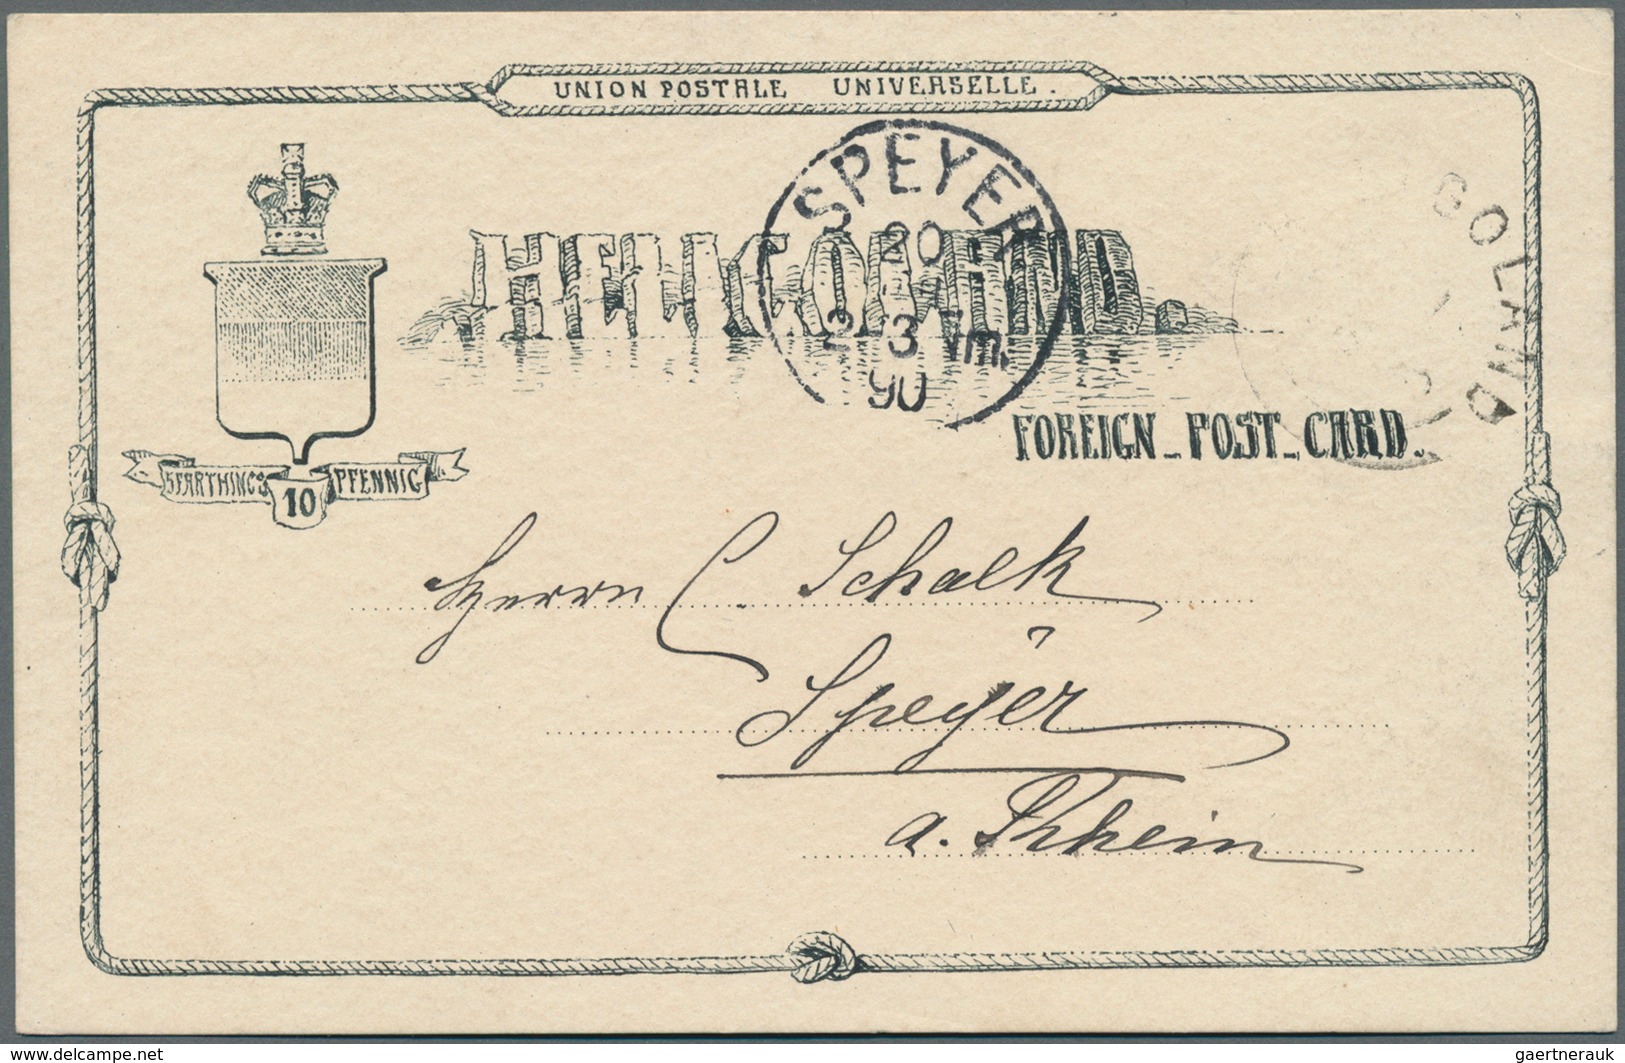 UNION POSTALE UNIVERSELLE.
HELIGOLAND
SPEYER
20
2-3 Vm.
90
GOLAND
FOREIGN_POST_CARD.
5 FARTHINGS 10 PFENNIG
Herrn C. Schalk
Speyer
a. Rhein
www.delcampe.net
gaertnerauk